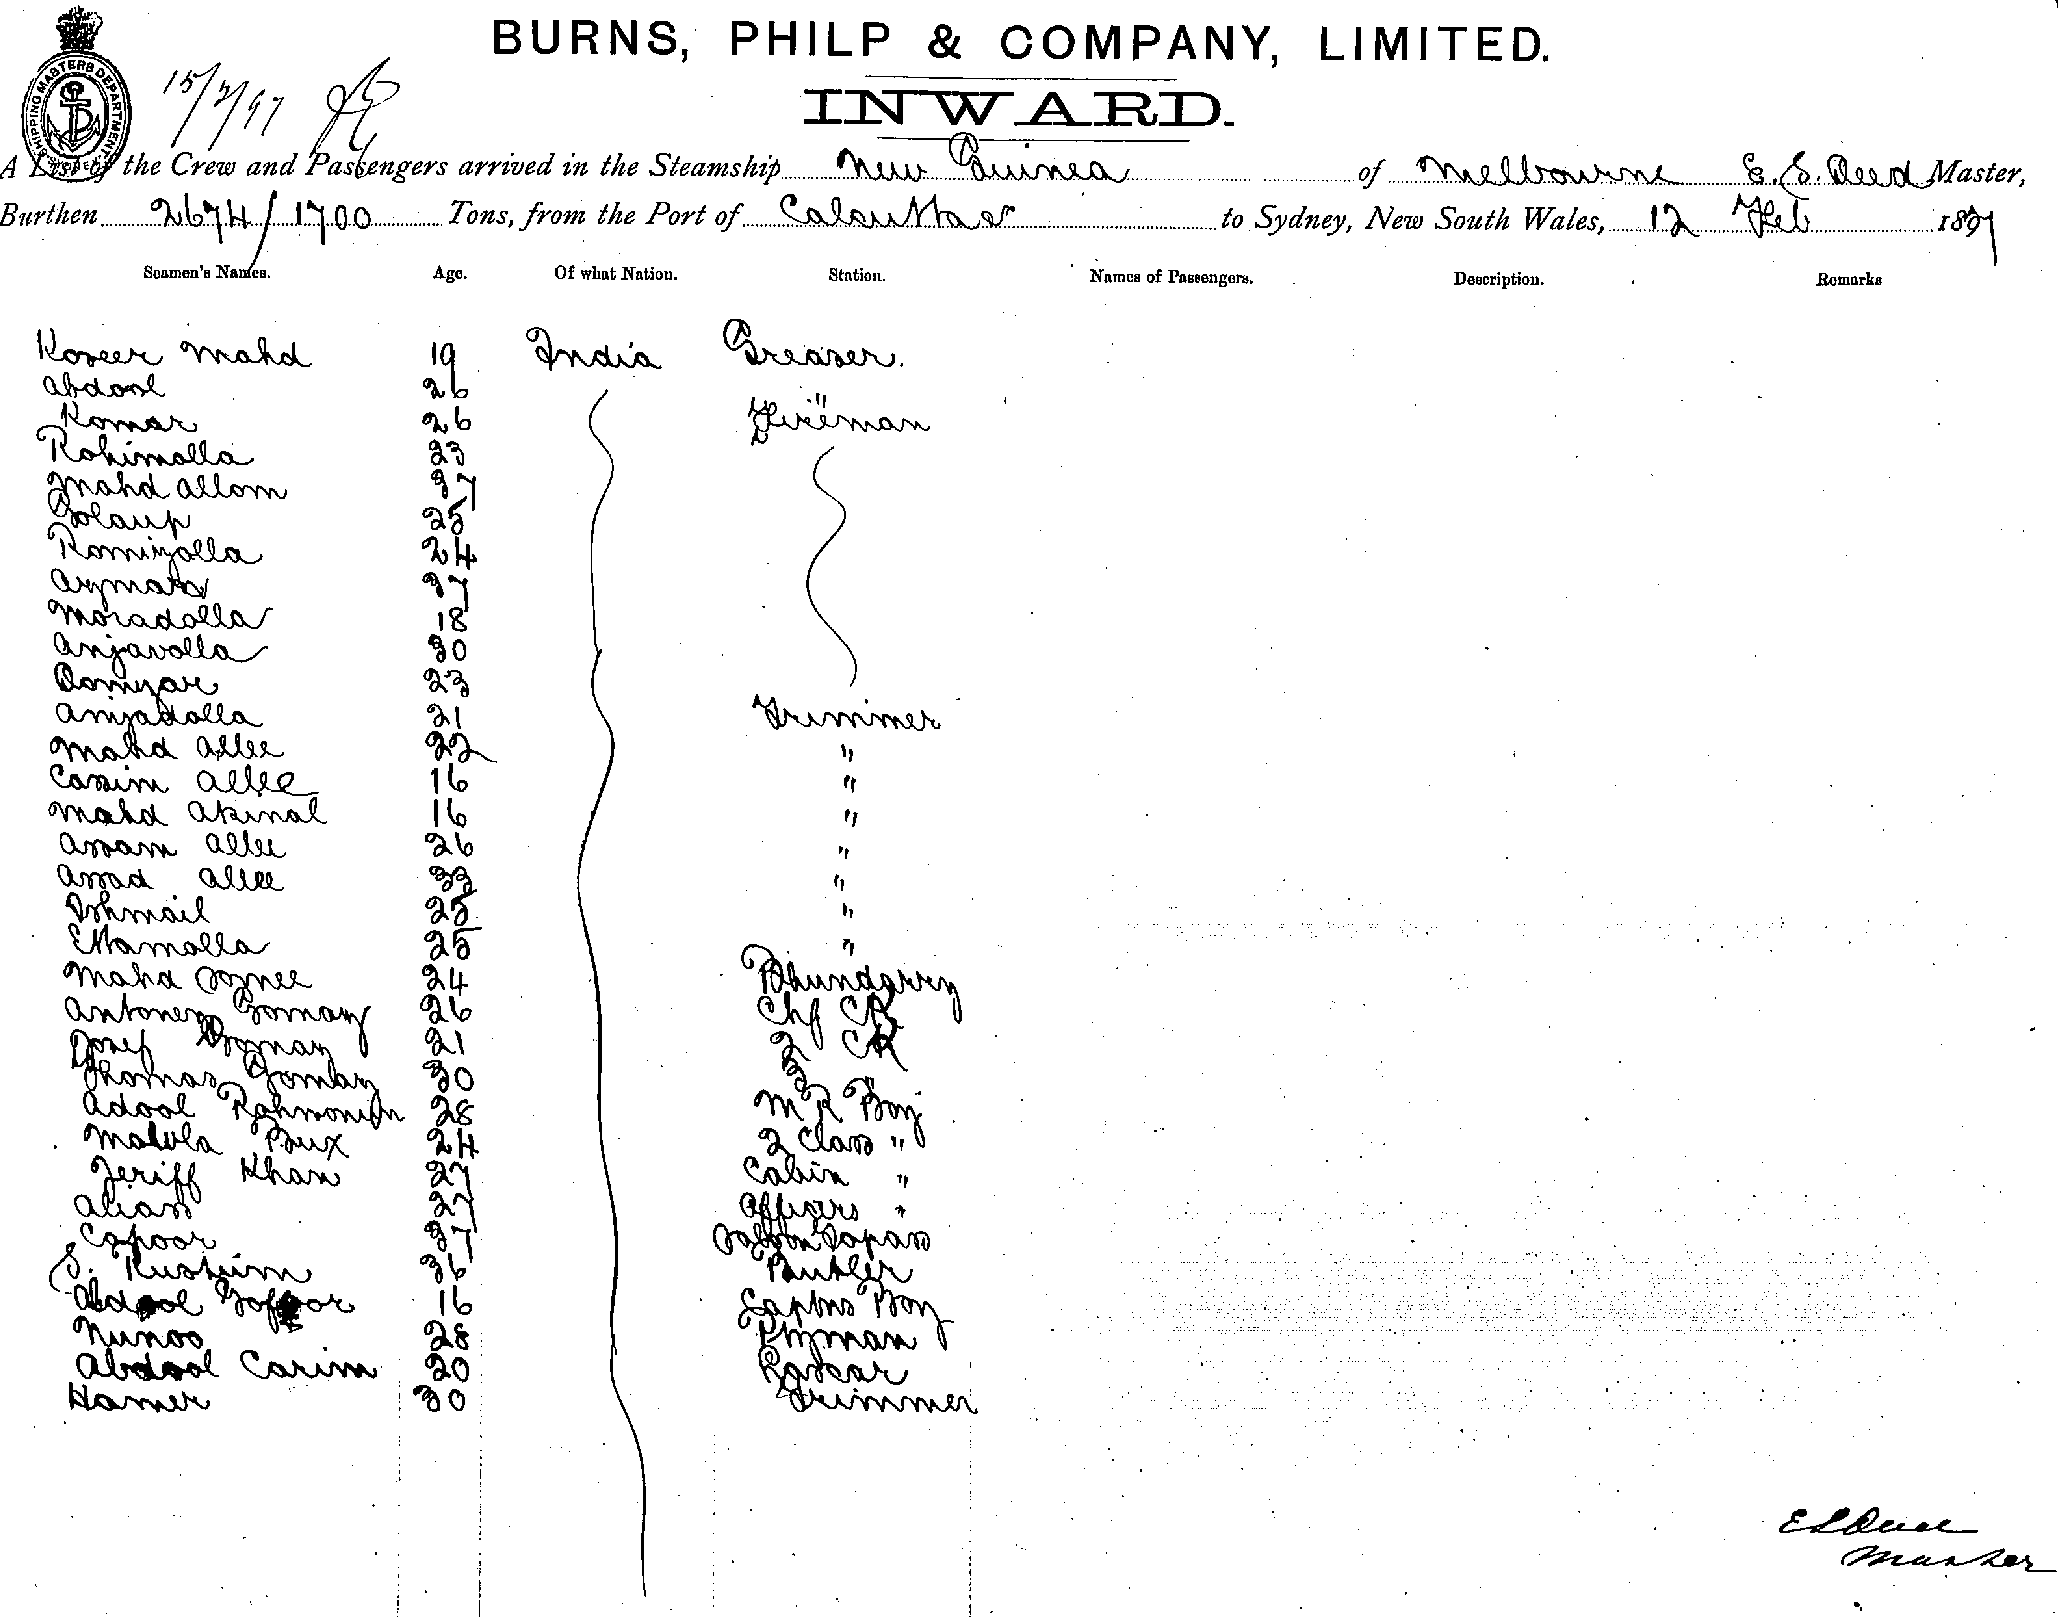 BURNS, PHILP & COMPANY, LIMITED.
SHIPPING MASTERS DEPARTMENT
15/2/97
INWARD.
A List of the Crew and Passengers arrived in the Steamship New Guinea of Melbourne E. S. Deed Master,
Burthen 2674/1700 Tons, from the Port of Calcutta to Sydney, New South Wales, 12 Feb 1897
Seamen's Names. Age. Of what Nation. Station. Names of Passengers. Description. Remarks
Koseer Mahd 19 India Greaser.
Abdool 26 "
Komar 26 Fireman
Rohimolla 23
Mahd Allom 37
Golaup 25
Romizolla 24
37
Moradolla 18
Anjavolla 30
Domizar 23
Amzadolla 21 Trimmer
Mahd Allee 22 "
Cassim Allee 16 "
Mahd Akinal 16 "
Assam Allee 26 "
Assad Allee 33 "
Ishmail 25 "
Ettamolla 25 "
Mahd 24 Bhundarry
Antoney Gomay 26 Chf Ck
Josef Gomay 21 2 Ck
Thomas Gomay 30 3 "
Adool 28 M R Boy
Bux 24 2 Class "
Jeriff Khan 27 Cabin "
27 Officers "
Capoor 37 Saloon Topass
S. Rustum 36 Butler
Abdool Goffoor 16 Captns Boy
Nunoo 28
Abdool Carim 20 Lascar
Hamer 30 Trimmer
E S Deed
Master